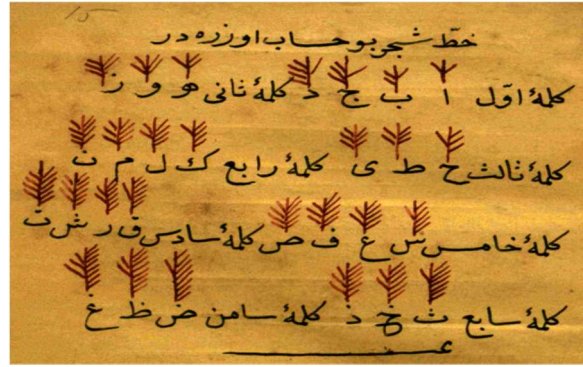 خطّ شجر بو حساب اوزره در
كلمۀ اوّل ا ب ج د كلمۀ ثانى ه و ز
كلمۀ ثالث ح ط ى كلمۀ رابع ك ل م ن
كلمۀ خامس س ع ف ص كلمۀ سادس ق ر ش ت
كلمۀ سابع ث خ ذ كلمۀ سامن ض ظ غ